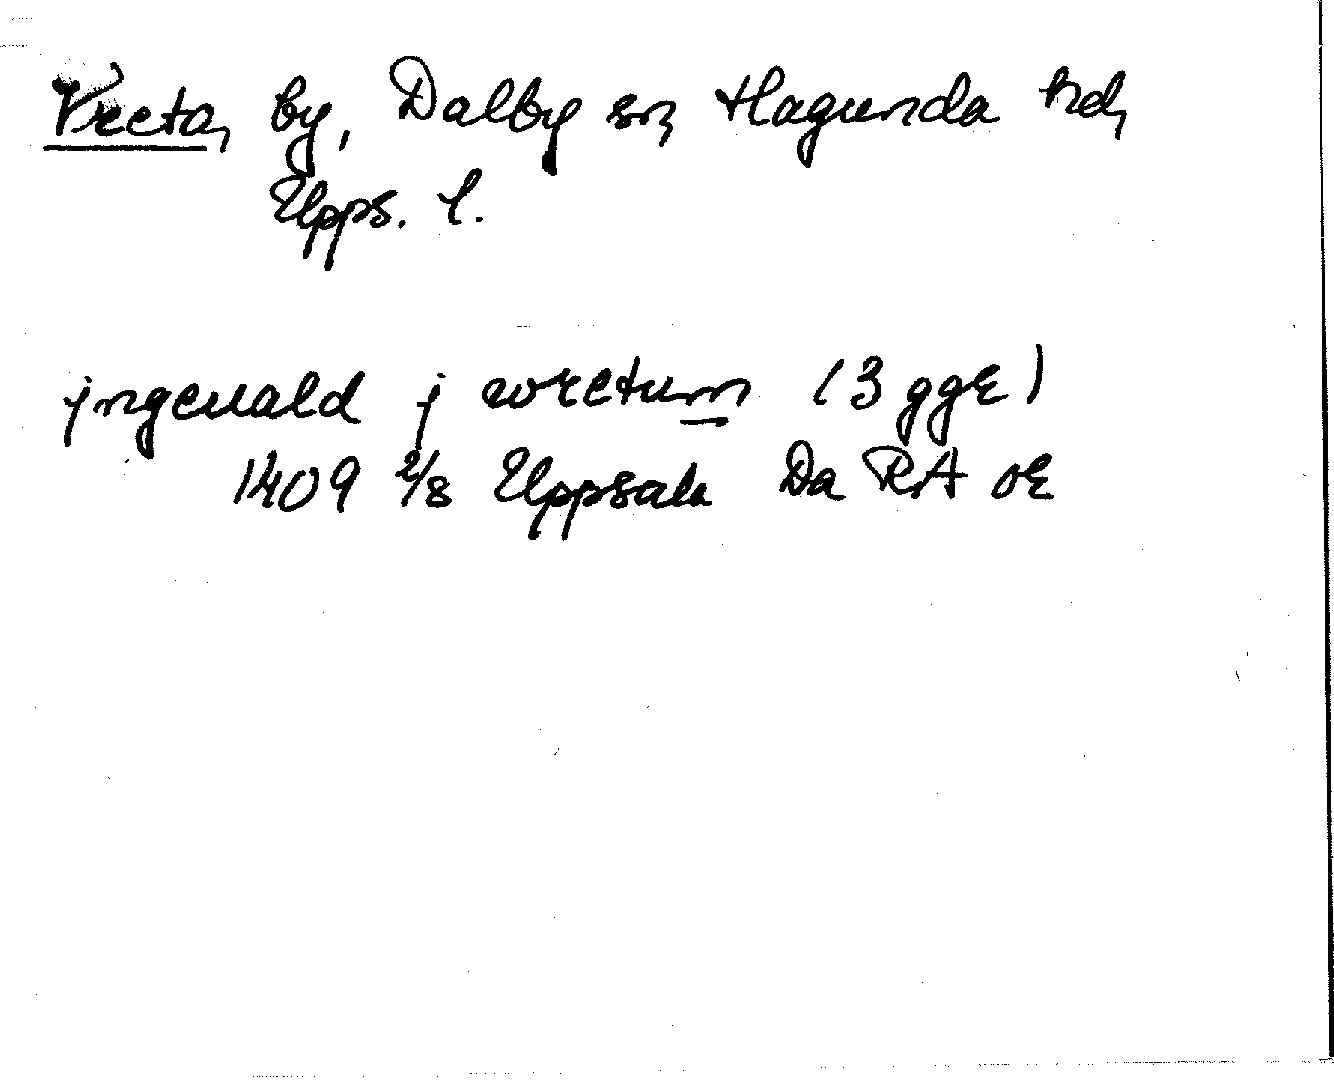 Vreta, by, Dalby sn, Hagunda hd,
Upps. l.
jngeuald j wretum (3 ggr)
1409 2/8 Uppsala Da RA or